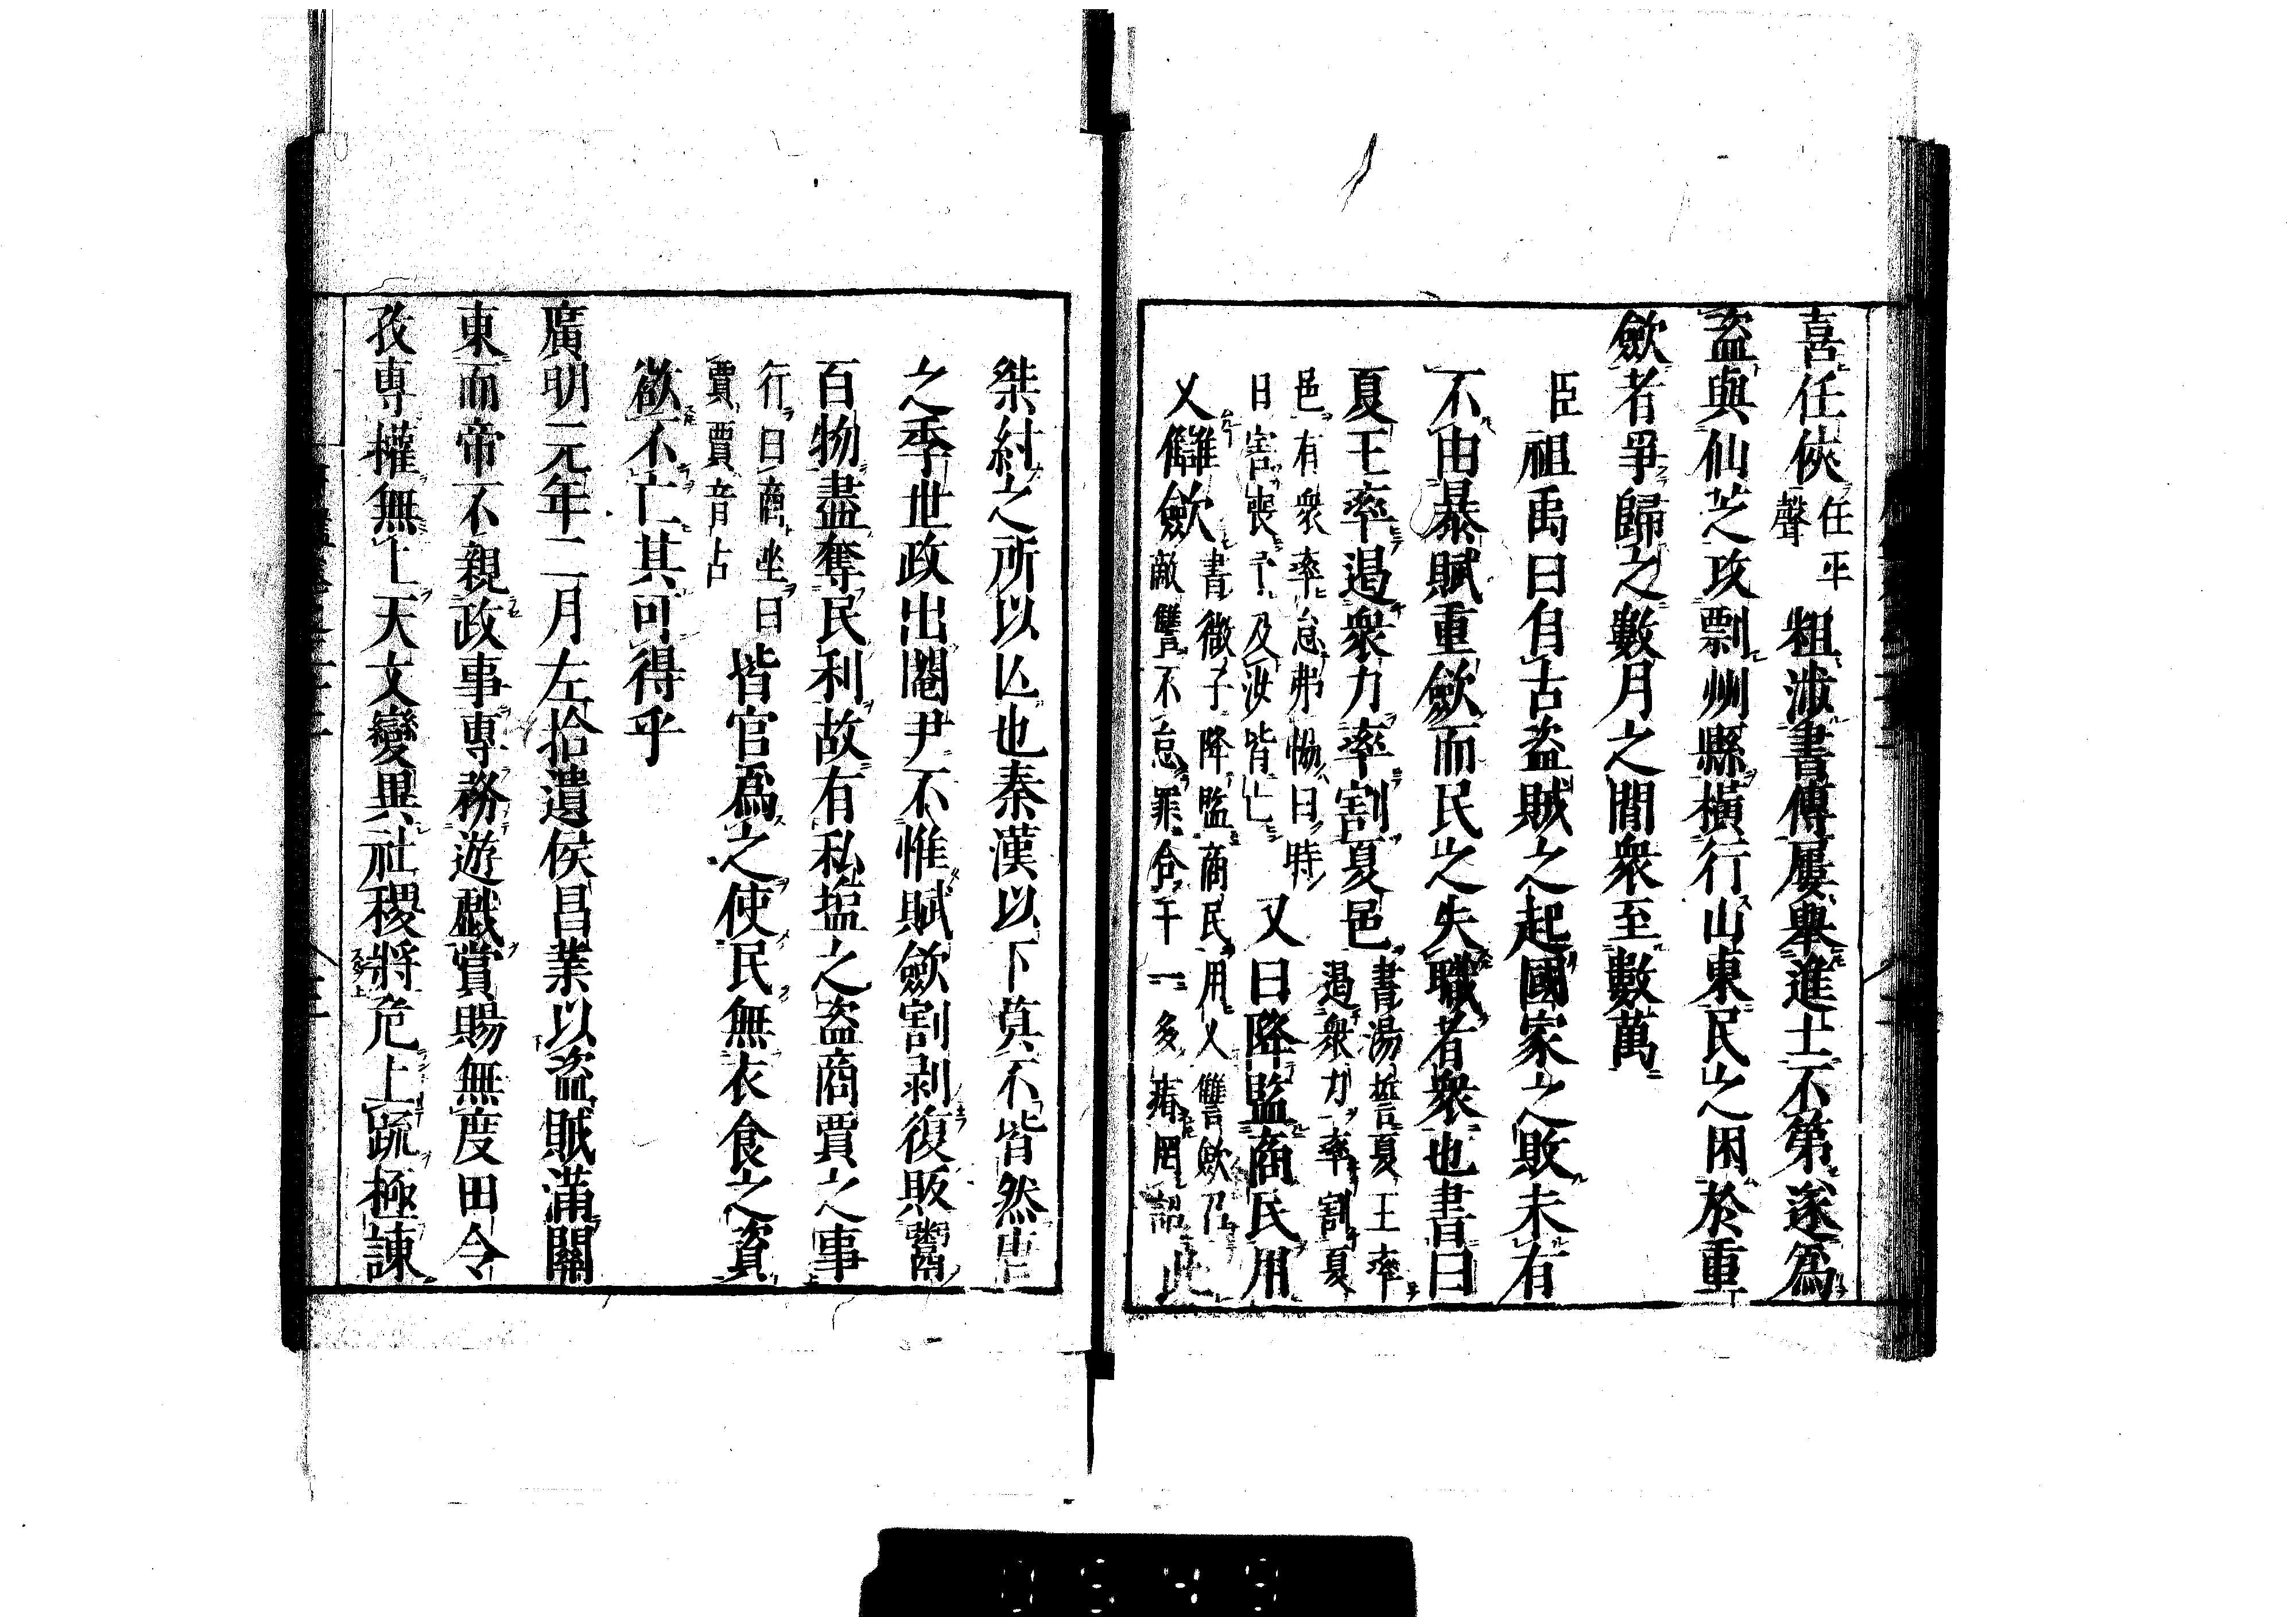 喜任俠任平聲粗渉書傳屢舉進士不第遂爲
盜與仙芝攻剽州縣橫行山東民之困於重
歛者爭歸之數月之間衆至數萬
臣祖禹曰自古盜賊之起國家之敗未有
不由暴賦重歛而民之失職者衆也書曰
夏王率遏衆力率割夏邑書湯誓夏王率遏衆力率割夏
邑有衆率怠弗恊曰時日害喪予及汝皆亡又曰降監商民用
乂讎歛書微子降監商民用乂讐歛召敵讐不怠罪合于一多瘠罔詔此
桀紂之所以亾也秦漢以下莫不皆然唐
之季世政出閹尹不惟賦歛割剥復販鬻
百物盡奪民利故有私塩之盜商賈之事
行曰商坐曰賈賈音占皆官爲之使民無衣食之資
欲不亡其可得乎
廣明元年二月左拾遺侯昌業以盜賊滿關
東而帝不親政事專務遊戯賞賜無度田令
孜專權無上天文變異社稷將危上疏極諫